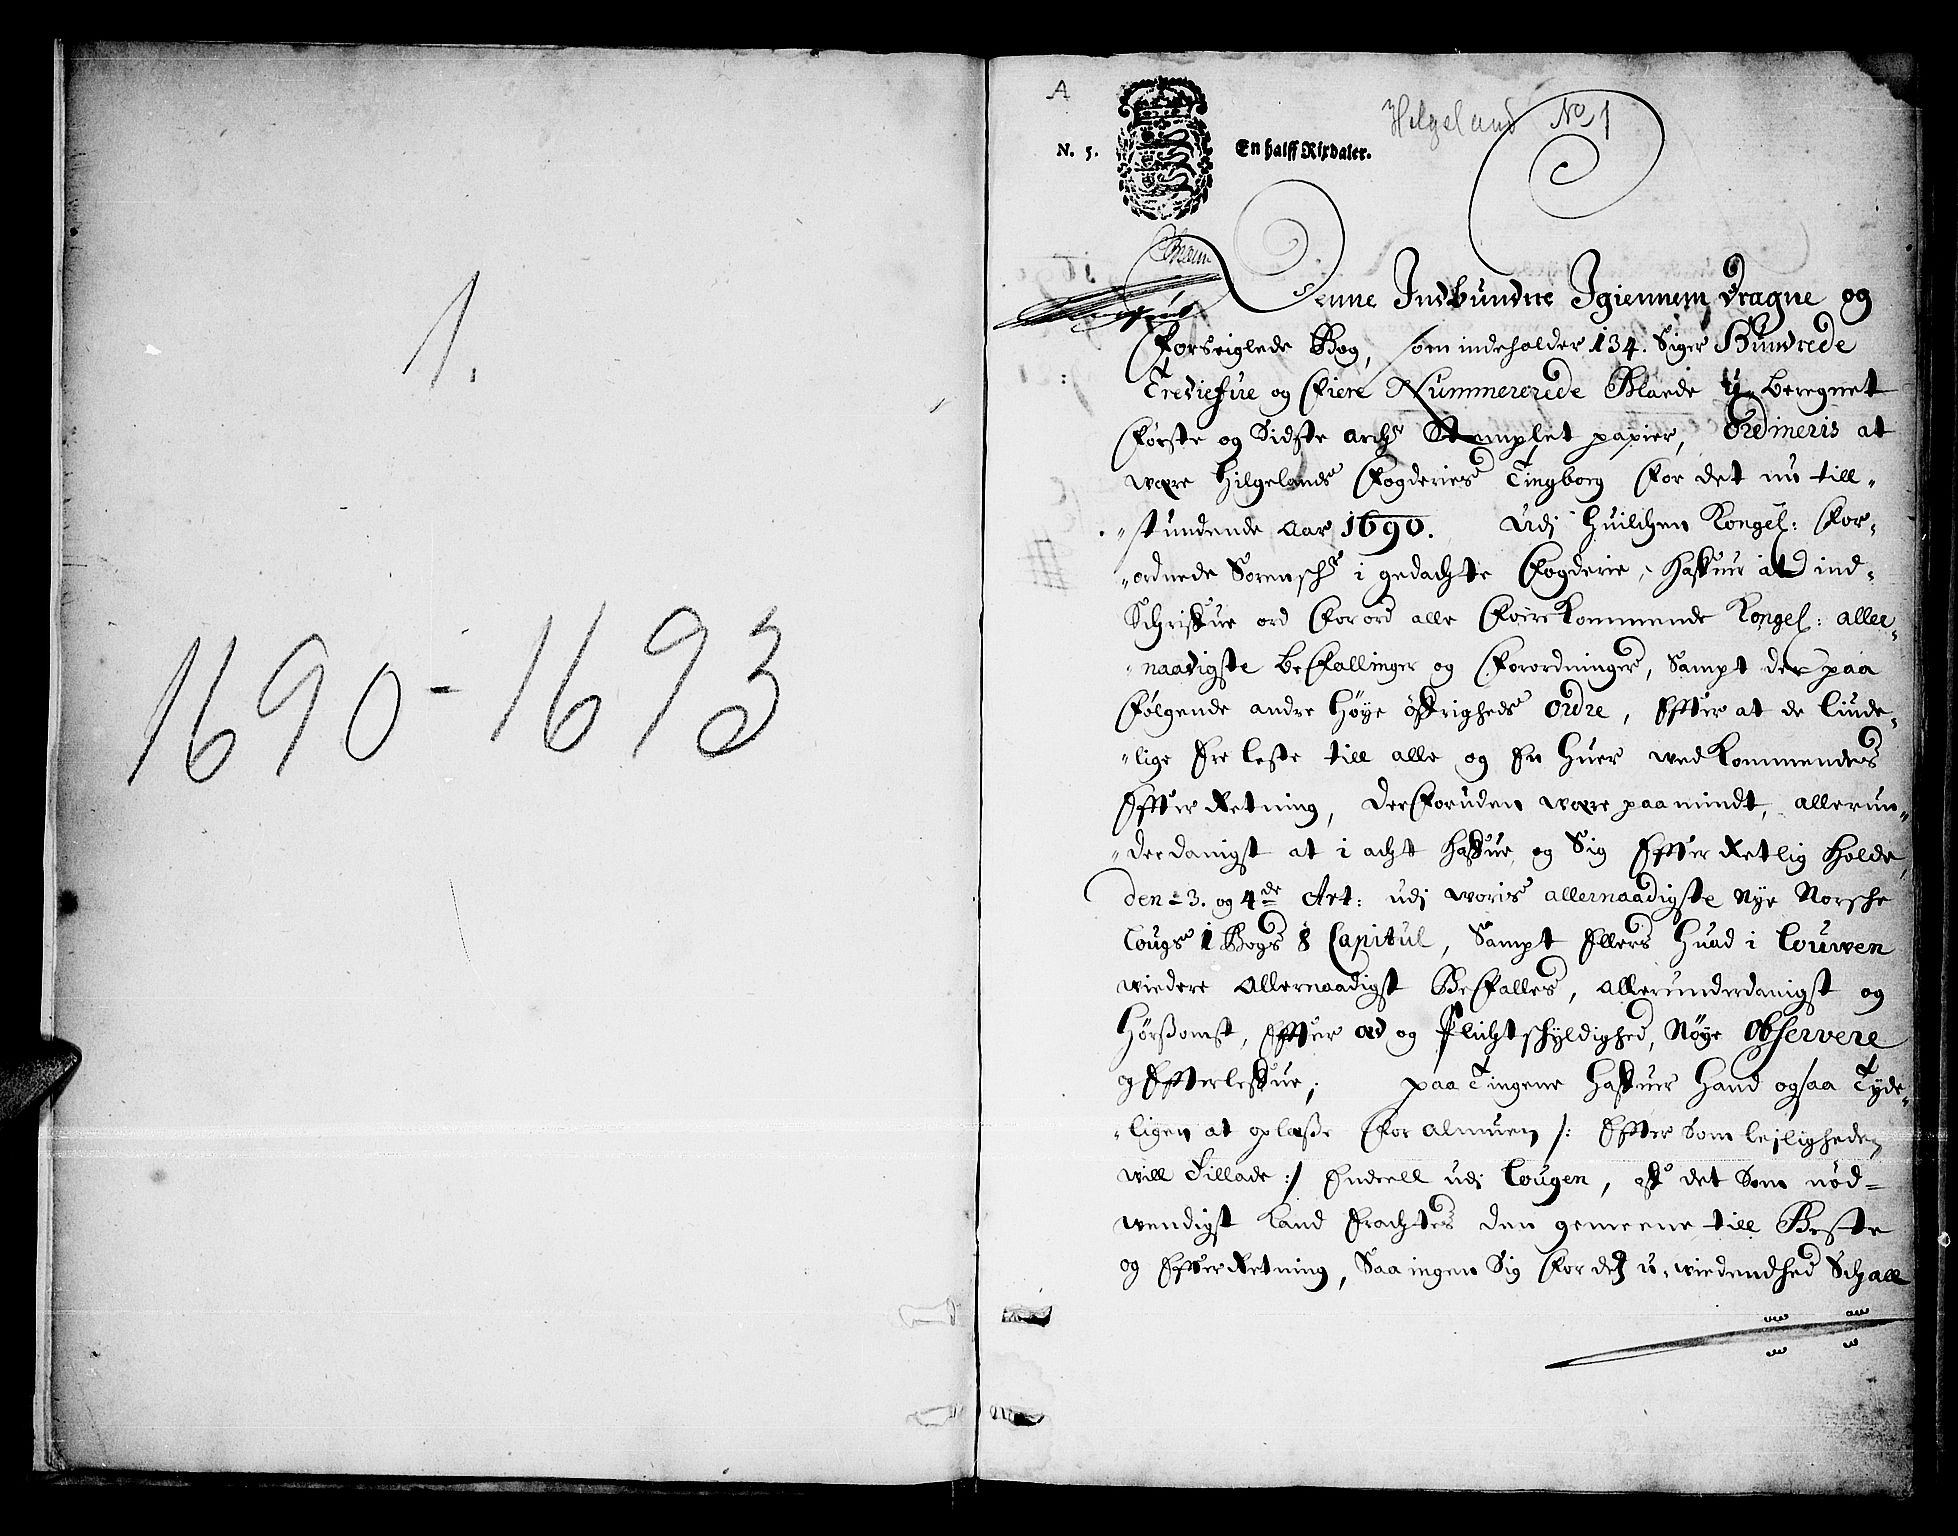 1.
1690-1693
A
Hilgeland No 1
N. 5. En halff Rixdaler.
Denne Indbundne Igiennem dragne og
Forseiglede Bog, som indeholder 134. Siger Hundrede
Trediefire og Fiere Nummererede Blaede u-beregnet
Første og Sidste arch Stemplet papier, Ordineris at
were Hilgelands Fogderies Tingbog For det nu till-
stundende Aar 1690. Udj huilchen Kongel: For-
ordnede Sorensch i gedachte Fogderie, haffuer at ind-
Schriffue ord For ord alle Foere Kommende Kongel: aller-
naadigste beFallinger og Forordninger, Sampt der paa
Følgende andre høye øffrigheds Ordre, Effter at de liude-
lige Ere leste till alle og En huer wedKommendes
Effter Retning, DerForuden were paamindt, allerun-
derdanigst at i acht haffue og Sig Effter Retlig holde,
den 3. og 4de Art: udj woris allernaadigste Nye Norsche
Lougs 1 Bogs 8 Capitul, Sampt Ellers huad i Louwen
widere Allernaadigst BeFalles, allerunderdanigst og
hørsomst, Effter æd og Plicht schyldighed, Nøye Observere
og Effterleffue; paa Tingene haffuer hand ogsaa Tyde-
ligen at oplæsse For almuen /: Effter Som lejligheden
will Tillade :/ Endeell udj Lougen, aff det Som nød-
wendigst Kand Erachtes den gemeene till Beste
og Effter Retning, Saa ingen Sig For dej u-widendhed Schall